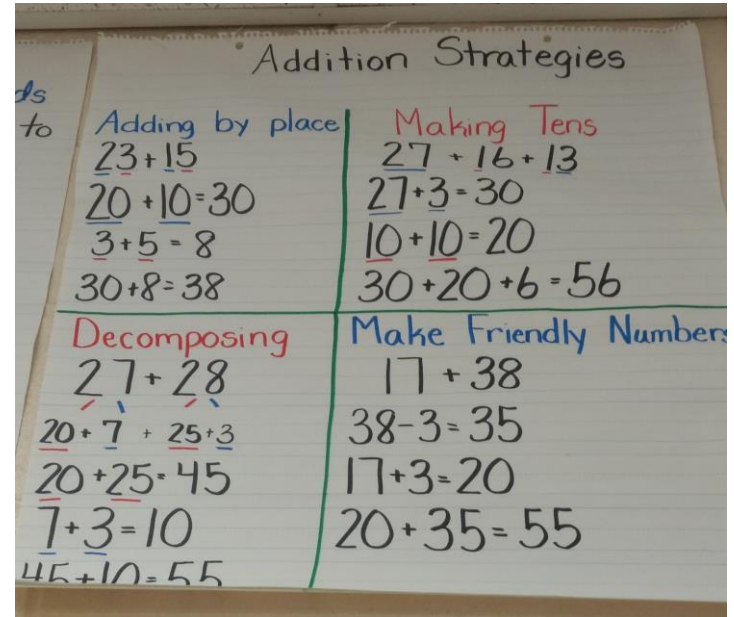 ds
to
Addition Strategies
Adding by place
23+15
20+10=30
3+5=8
30+8=38
Making Tens
27+16+13
27+3=30
10+10=20
30+20+6=56
Decomposing
27+28
20+7+25+3
20+25=45
7+3=10
45+10=55
Make Friendly Numbers
17+38
38-3=35
17+3=20
20+35=55